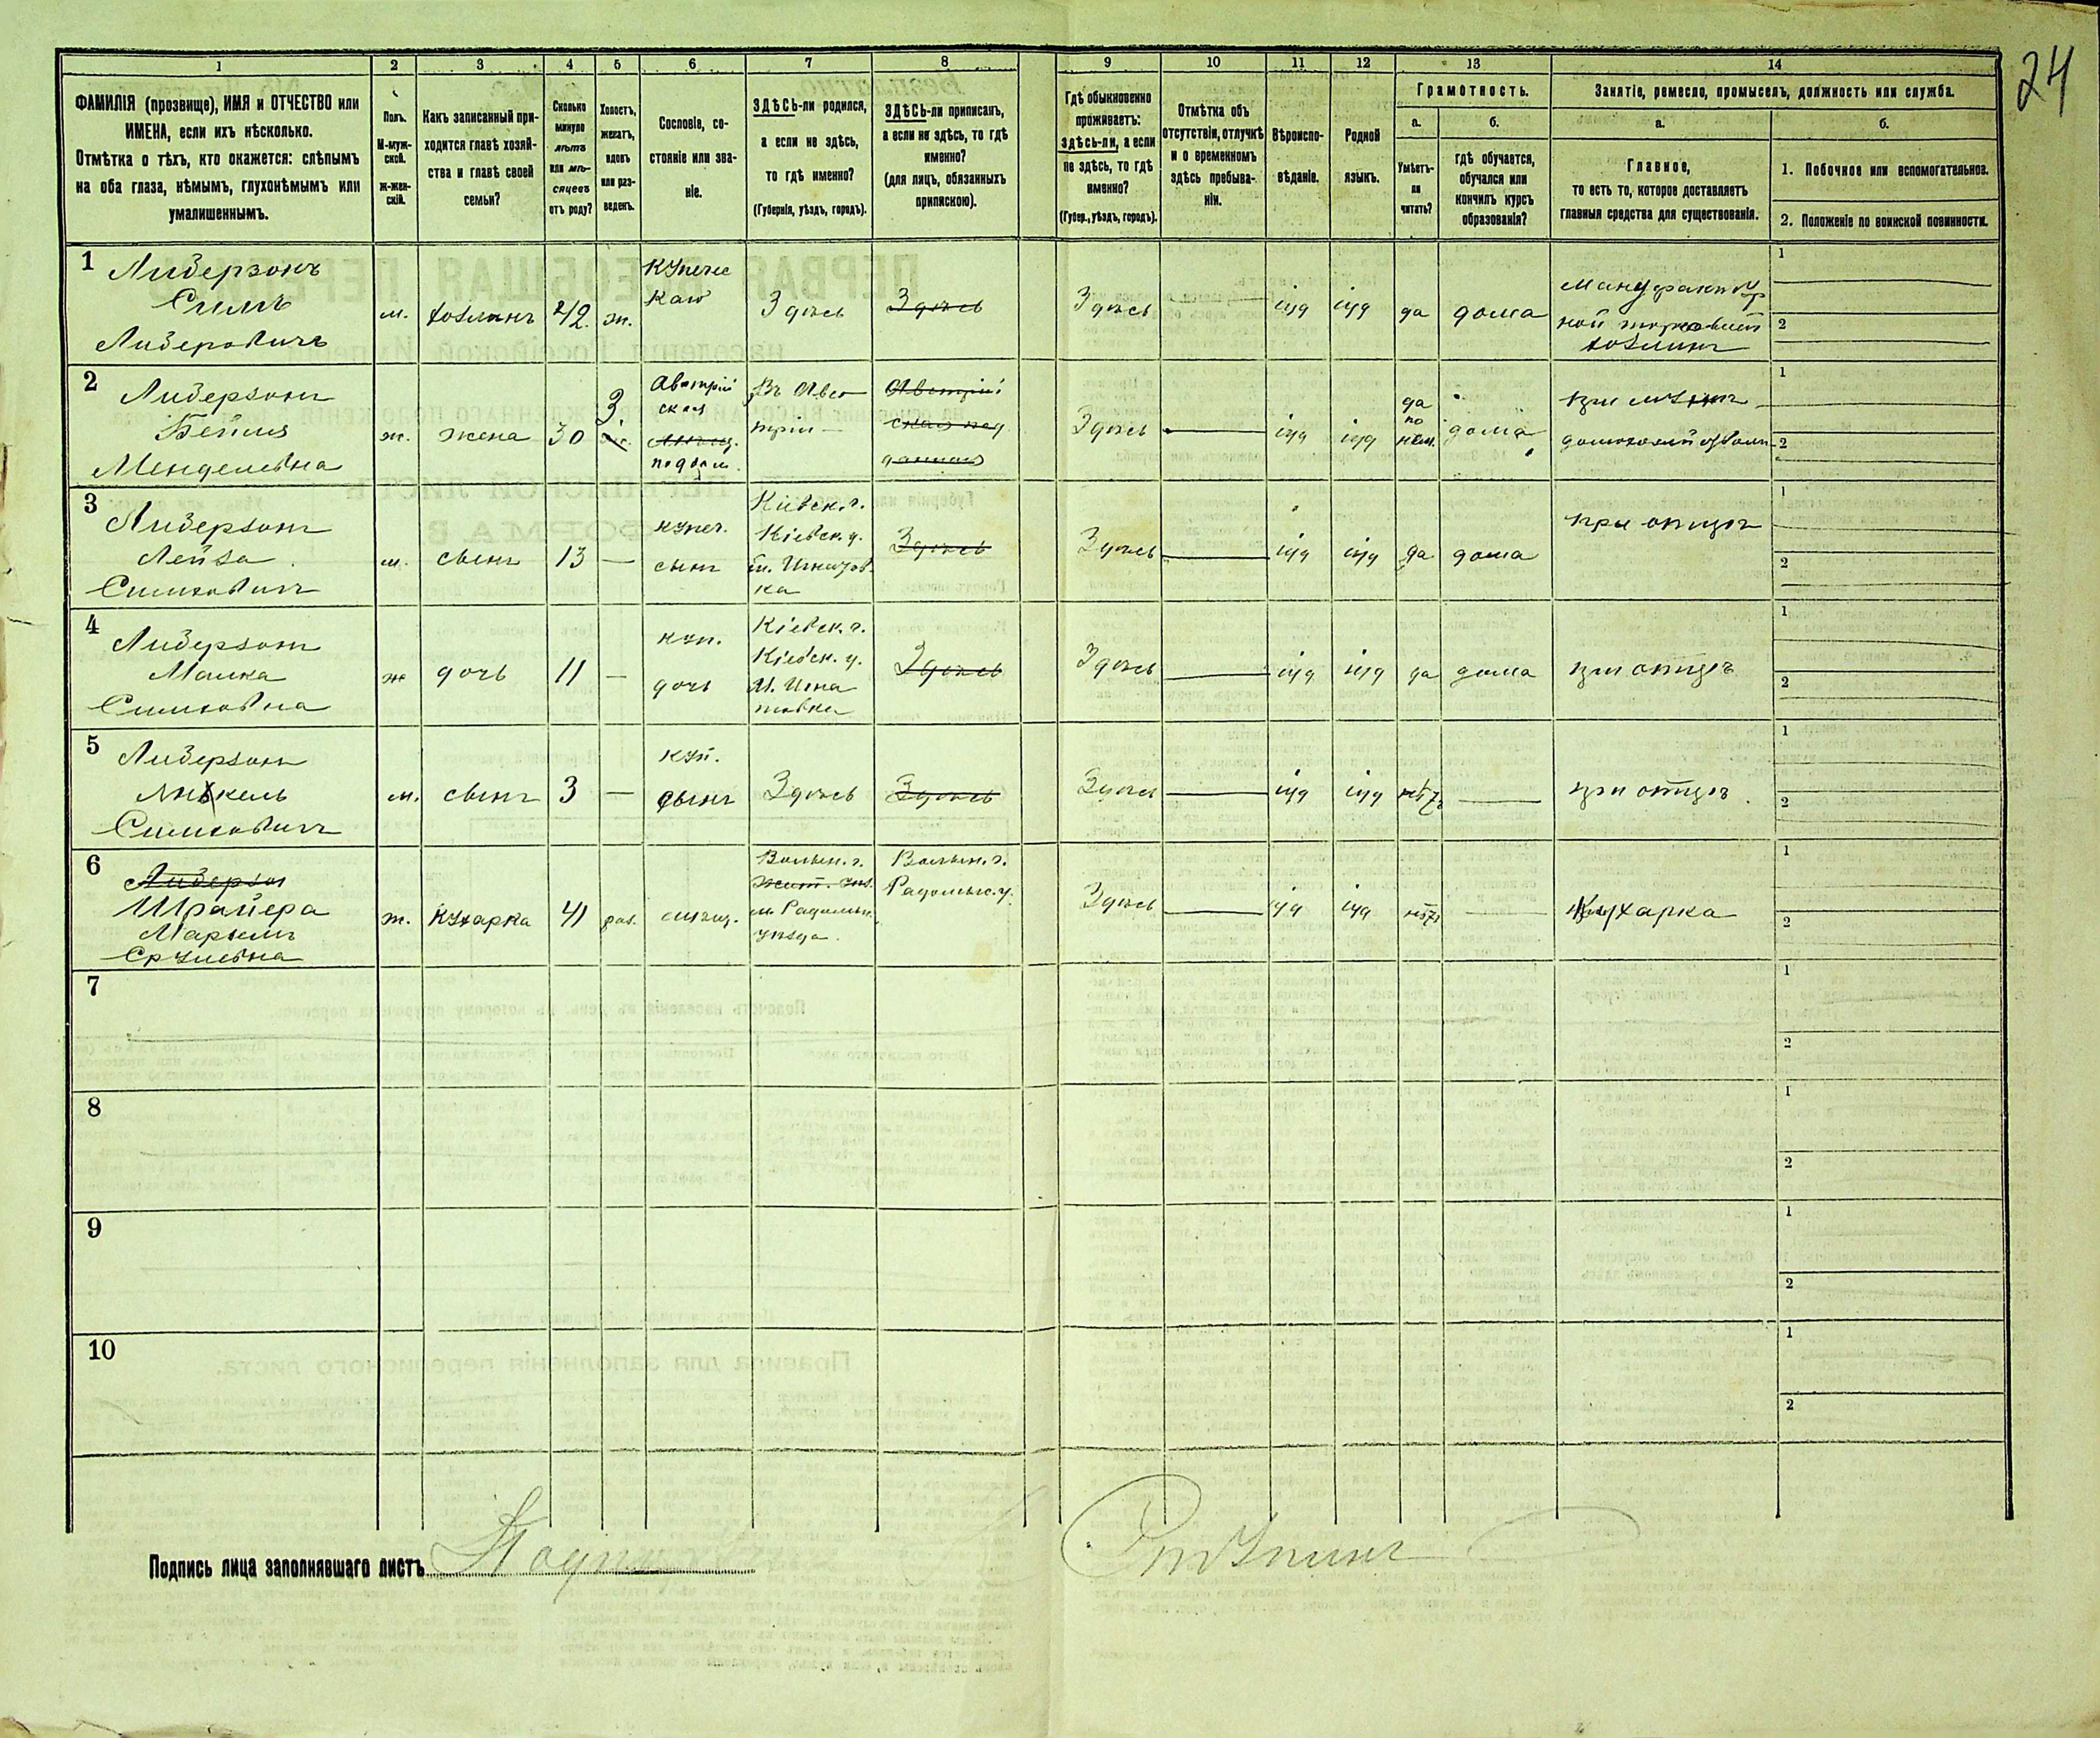 24
1 2 3 4 5 6 7 8 9 10 11 12 13 14
ФАМИЛІЯ (прозвище), ИМЯ и ОТЧЕСТВО или
ИМЕНА, если ихъ нѣсколько.
Отмѣтка о тѣхъ, кто окажется: слѣпымъ
на оба глаза, нѣмымъ, глухонѣмымъ или
умалишеннымъ.
Полъ.
М-муж-
ской.
Ж-жен-
скій.
Какъ записанный при-
ходится главѣ хозяй-
ства и главѣ своей
семьи?
Сколько
минуло
лѣтъ
или мѣ-
сяцевъ
отъ роду?
Холостъ,
женатъ,
вдовъ
или раз-
веденъ.
Сословіе, со-
стояніе или зва-
ніе.
ЗДѢСЬ-ли родился,
а если не здѣсь,
то гдѣ именно?
(Губернія, уѣздъ, городъ).
ЗДѢСЬ-ли приписанъ,
а если не здѣсь, то гдѣ
именно?
(для лицъ, обязанныхъ
припискою).
Гдѣ обыкновенно
проживаетъ:
здѣсь-ли, а если
не здѣсь, то гдѣ
именно?
(Губер., уѣздъ, городъ).
Отмѣтка объ
отсутствіи, отлучкѣ
и о временномъ
здѣсь пребыва-
ніи.
Вѣроиспо-
вѣданіе.
Родной
языкъ.
Грамотность.
а.
Умѣетъ-
ли
читать?
б.
гдѣ обучается,
обучался или
кончилъ курсъ
образованія?
Занятіе, ремесло, промыселъ, должность или служба.
а.
Главное,
то есть то, которое доставляетъ
главныя средства для существованія.
б.
1. Побочное или вспомогательное.
2. Положеніе по воинской повинности.
1
Лидерзонъ
Лидеровичъ
м. хозяинъ 42 ж.
Купечес
каго
Здѣсь Здѣсь Здѣсь іуд іуд да дома
Мануфактур
ной торговли
хозяинъ
1
2
2
Лидерзонъ
Бейля
Менделевна
ж. жена 30 З.
Австрій
ская
поддан.
Въ Авс
тріи
Австрій
ская под
данная
Здѣсь іуд іуд
да
по
нем.
дома
при мужѣ
1
2
3
Лидерзонъ
Лейза
м. сынъ 13
купеч.
сынъ
Кіевск. г.
Кіевск. у.
м. Игнатов
ка
Здѣсь Здѣсь іуд іуд да дома
при отцѣ
1
2
4
Лидерзонъ
Малка
ж дочь 11
куп.
дочь
Кіевск. г.
Кіевск. у.
М. Игна
товка
Здѣсь Здѣсь іуд іуд да дома
при отцѣ
1
2
5
Лидерзонъ
м. сынъ 3
куп.
сынъ
Здѣсь Здѣсь Здѣсь іуд іуд нѣтъ
при отцѣ
1
2
6
Лидерзон
Шрайера
Марьямъ
Срулевна
ж. Кухарка 41 раз. мѣщ.
Волын. г.
м. Радомыс.
уѣзда
Волын. г.
Радомыс. у.
Здѣсь іуд іуд нѣтъ
Кухарка
1
2
7
1
2
8
1
2
9
1
2
10
1
2
Подпись лица заполнявшаго листъ